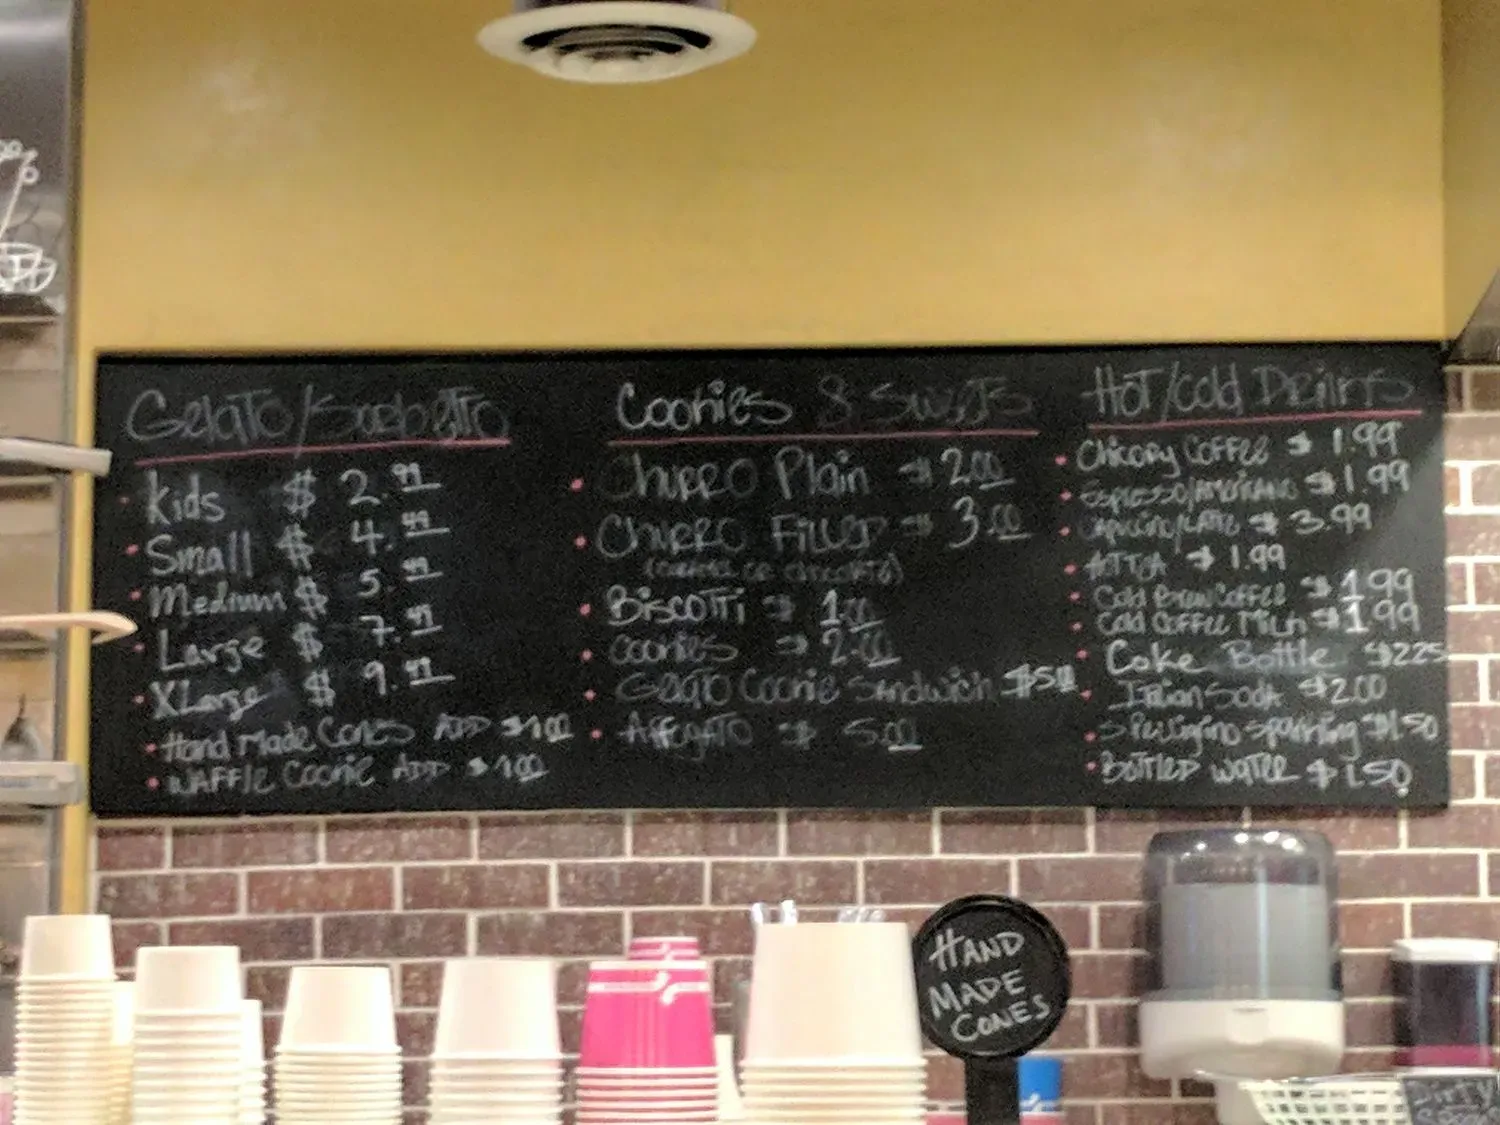 Gelato/Sorbetto
Kids $ 2.99
Small $ 4.49
Medium $ 5.49
Large $ 7.49
XLarge $ 9.49
Hand Made Cones ADD $1.00
WAFFLE Cookie ADD $1.00
Cookies & Sweets
Churro Plain $2.00
Churro Filled $3.00
Biscotti $1.00
cookies $2.00
Gelato Cookie Sandwich $5.00
Affogato $ 5.00
Hot/Cold Drinks
Chicory Coffee $1.99
Espresso/Americano $1.99
$3.99
Hot Tea $1.99
Cold Brew Coffee $1.99
Cold Coffee Milk $1.99
Coke Bottle $225
Italian Soda $200
Sparkling $1.50
Bottled water $1.50
HAND
MADE
CONES
Dirty